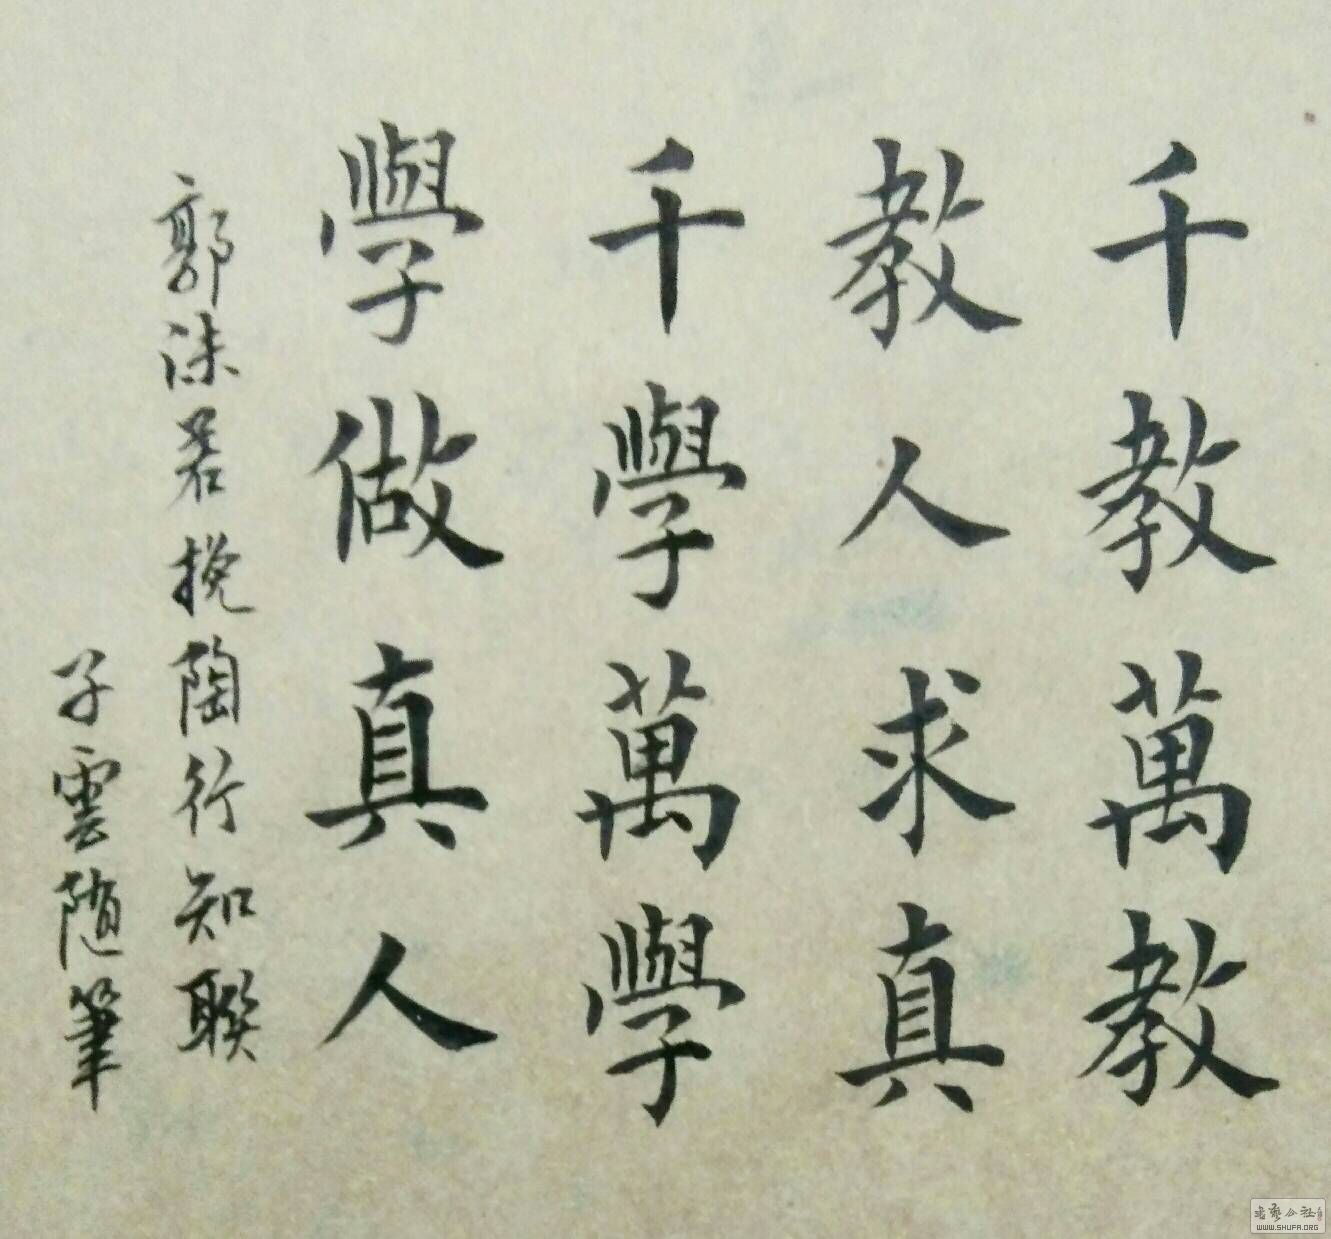 千教萬教
教人求真
千學萬學
學做真人
郭沫若挽陶行知聯
子雲随筆
书艺公社
WWW.SHUFA.ORG